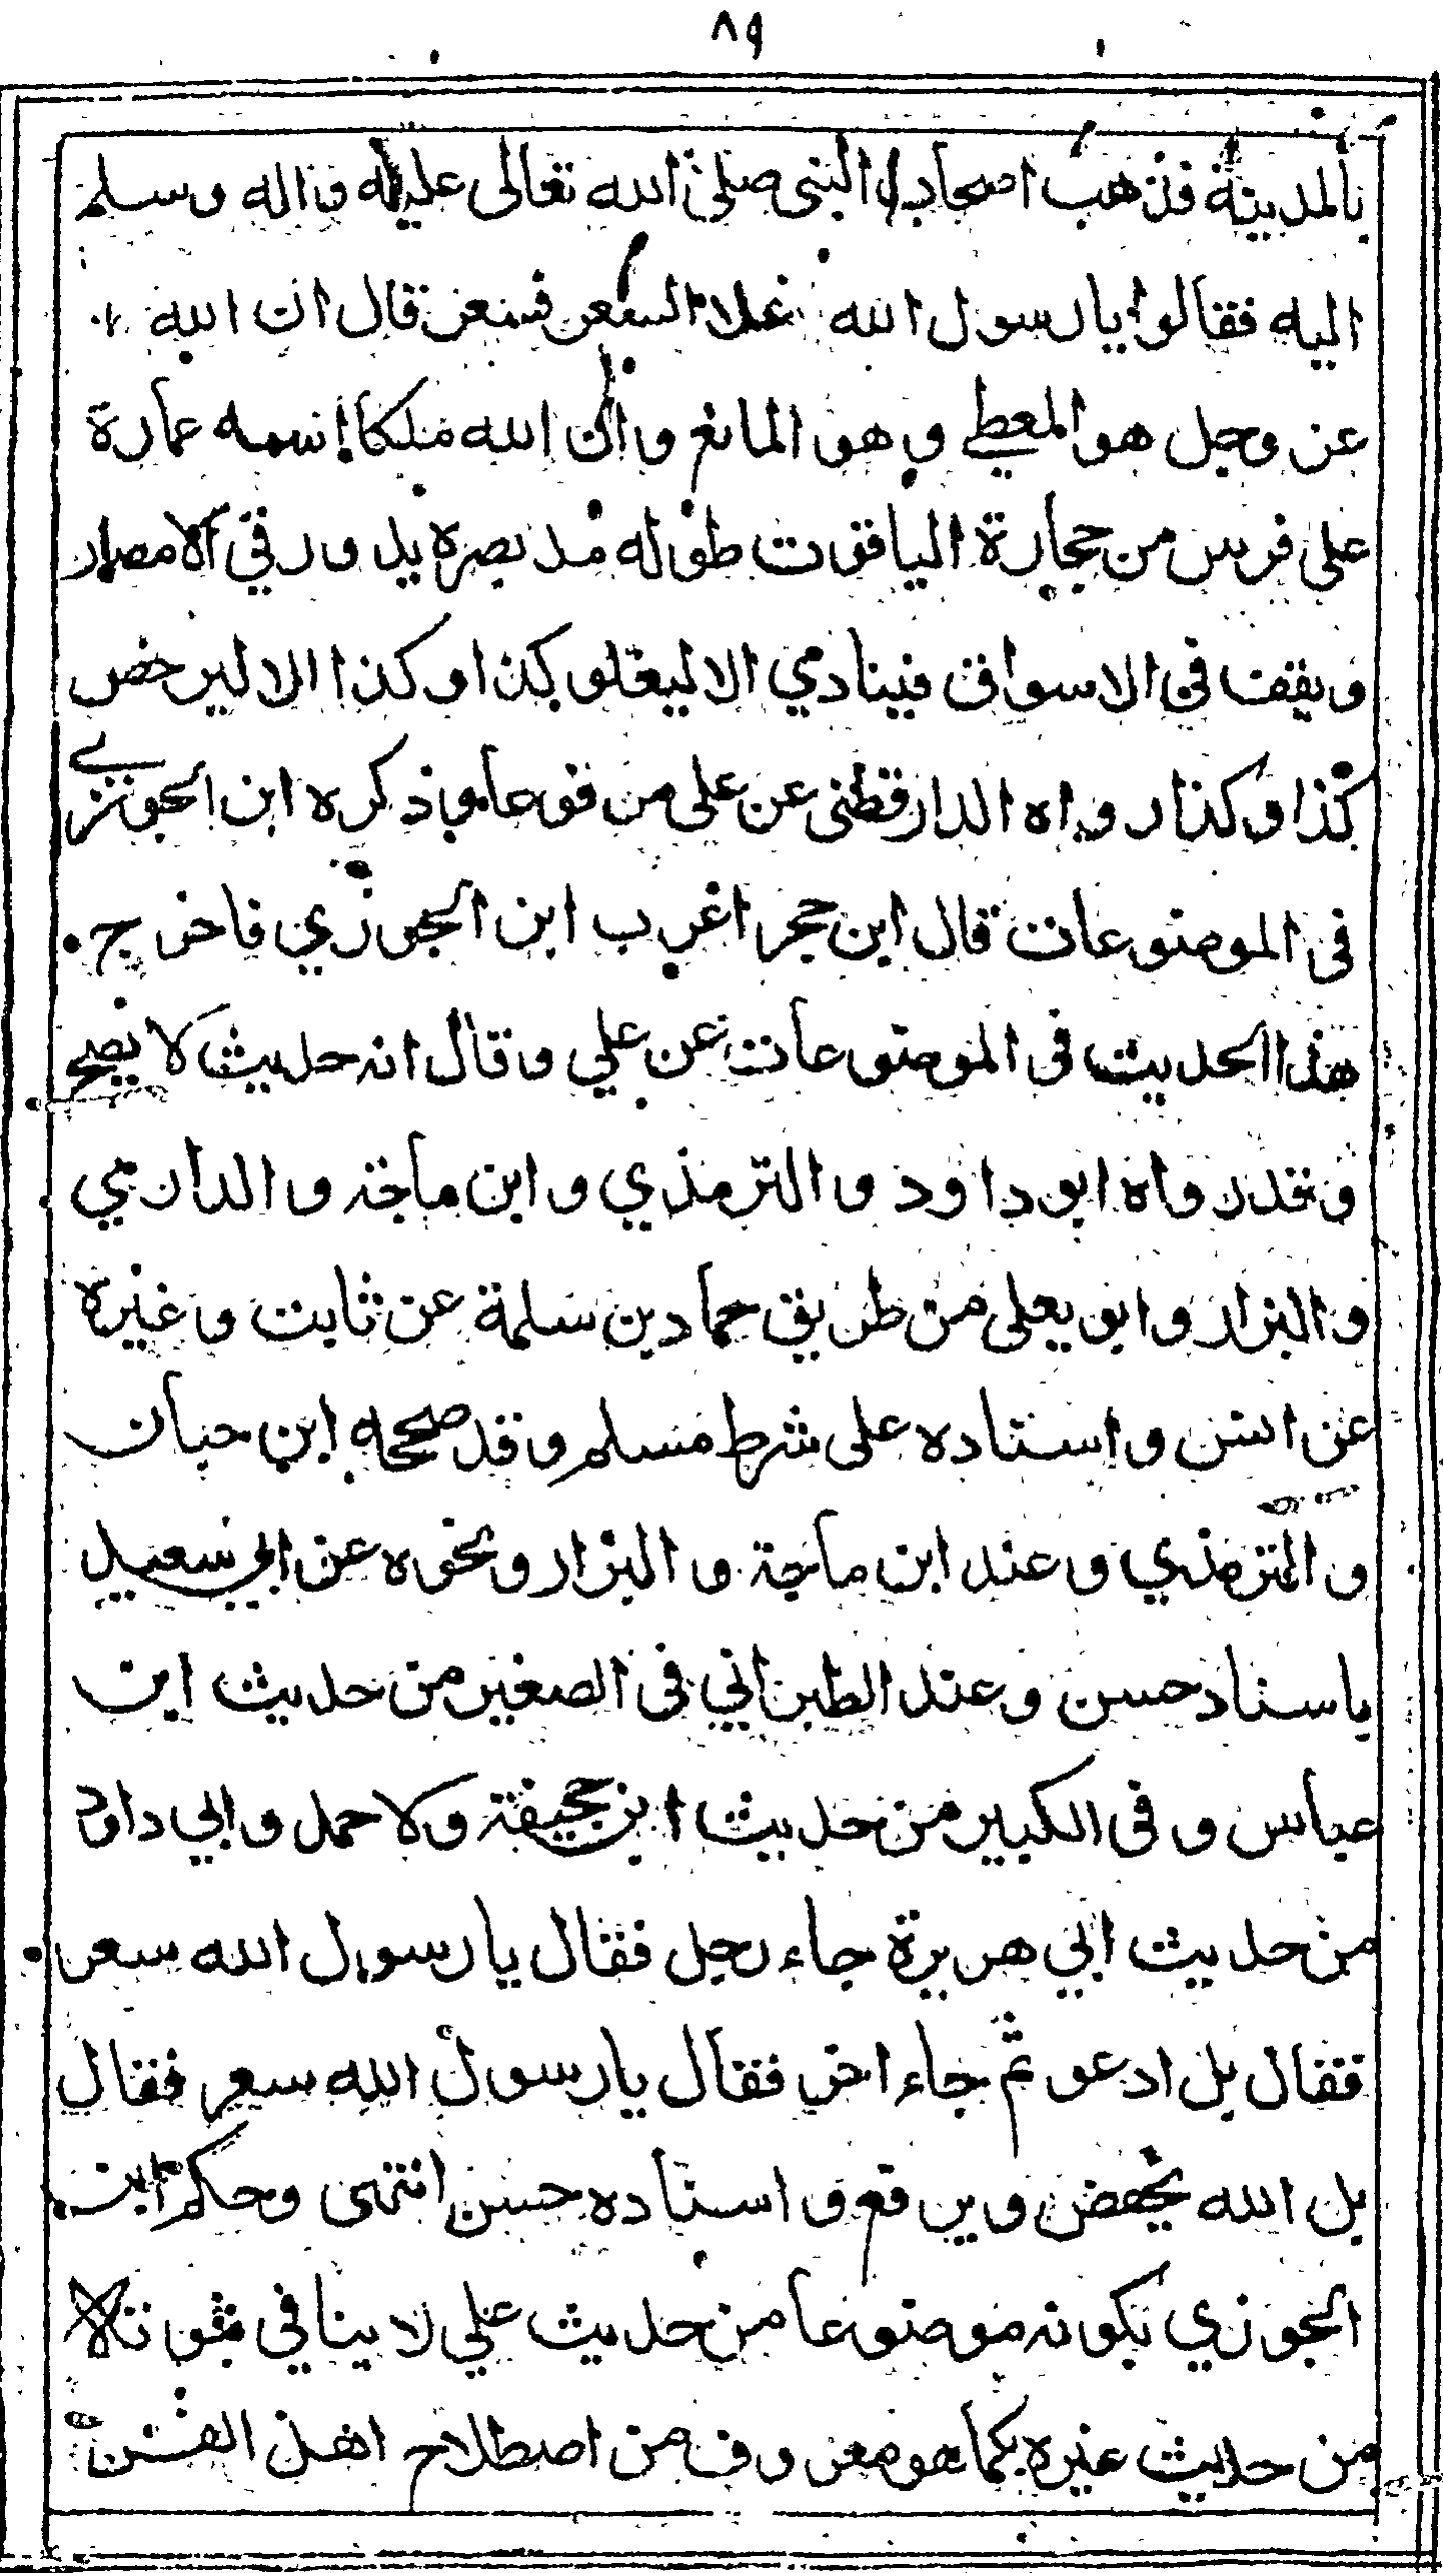 ٨٩
بالمدينة فذهب اصحاب النبي صلى الله تعالى عليه واله وسلم
اليه فقالوا يا رسول الله غلا السعر فسعر قال ان الله
عز وجل هو المعطي وهو المانع وان لله ملكا اسمه عمارة
على فرس من حجارة الياقوت طوله مد بصره يدور في الامصار
ويقف في الاسواق فينادي الا ليغلو كذا وكذا الا ليرخص
كذا وكذا رواه الدارقطني عن علي مرفوعا وذكره ابن الجوزي
في الموضوعات قال ابن حجر اغرب ابن الجوزي فاخرج
هذا الحديث في الموضوعات عن علي وقال انه حديث لا يصح
وقد رواه ابو داود والترمذي وابن ماجة والدارمي
والبزار وابو يعلى من طريق حماد بن سلمة عن ثابت وغيره
عن انس واسناده على شرط مسلم وقد صححه ابن حبان
والترمذي وعند ابن ماجة والبزار ونحوه عن ابي سعيد
باسناد حسن وعند الطبراني في الصغير من حديث ابن
عباس وفي الكبير من حديث ابي جحيفة ولاحمد وابي داود
من حديث ابي هريرة جاء رجل فقال يا رسول الله سعر
فقال بل ادعو ثم جاء اخر فقال يا رسول الله سعر فقال
بل الله يخفض ويرفع واسناده حسن انتهى وحكم ابن
الجوزي بكونه موضوعا من حديث علي لا ينافي ثبوته
من حديث غيره كما هو معروف من اصطلاح اهل الفن